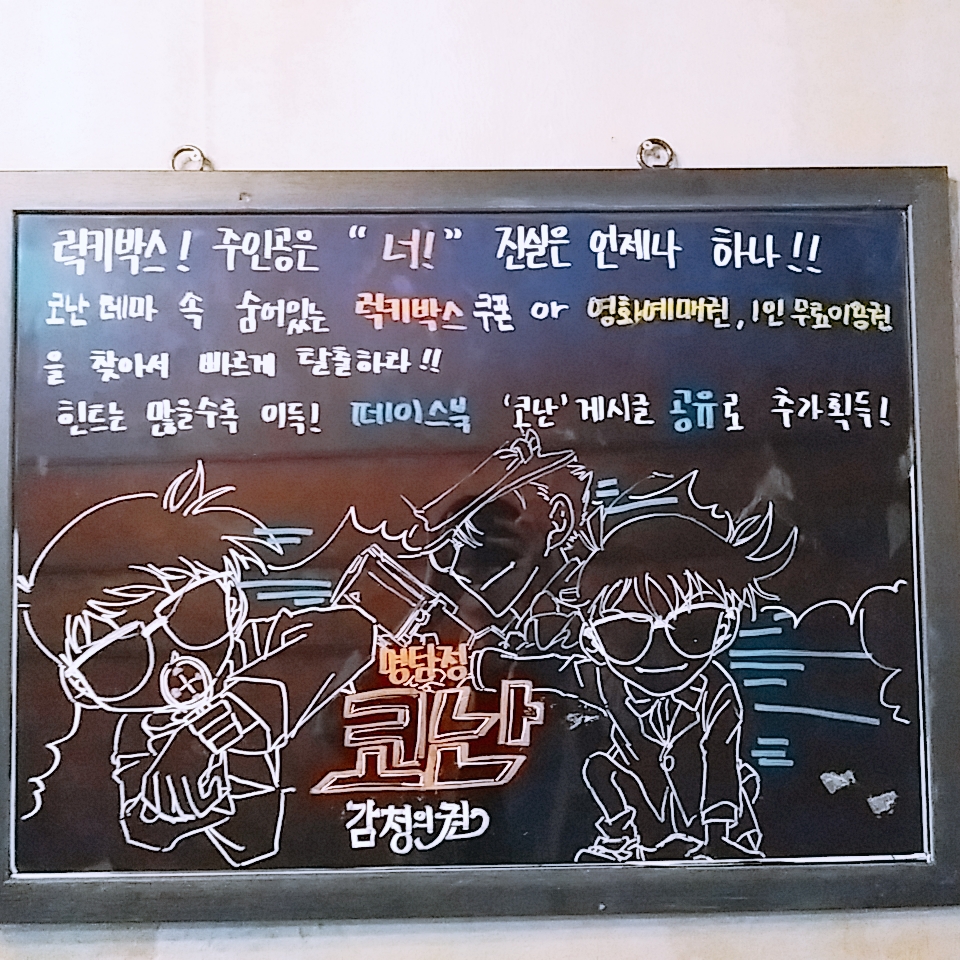 럭키박스! 주인공은 “너!” 진실은 언제나 하나!!
코난 테마 속 숨어있는 럭키박스 쿠폰 or 영화예매권, 1인 무료이용권
을 찾아서 빠르게 탈출하라!!
힌트는 많을수록 이득! 페이스북 '코난' 게시글 공유로 추가획득!
명탐정
코난
감청의 권